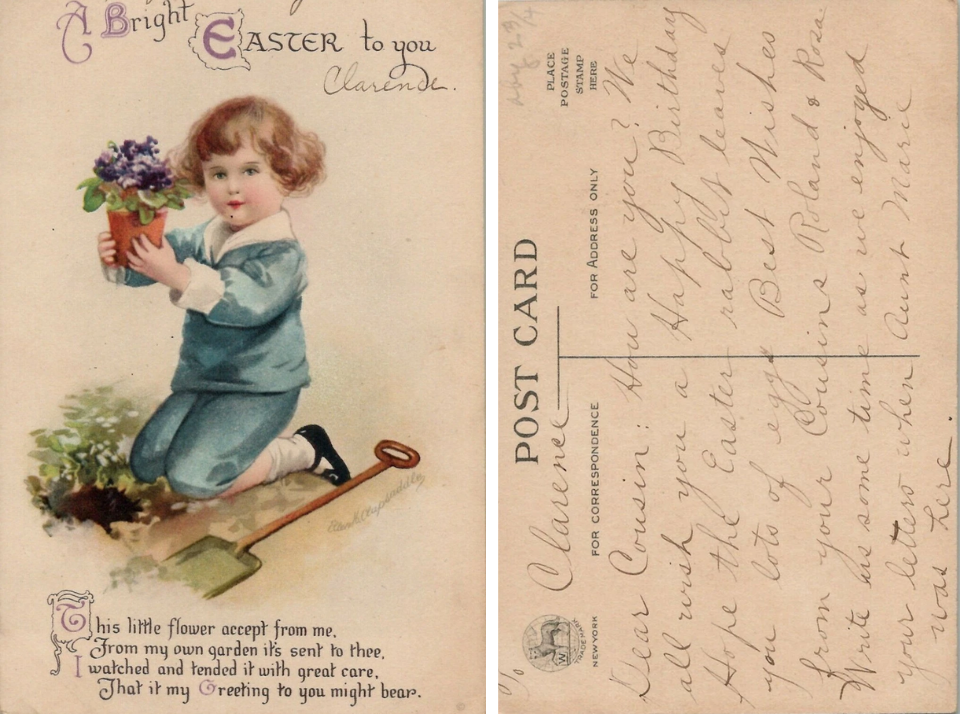 A Bright
EASTER to you
Clarence.
Ellen H. Clapsaddle
This little flower accept from me,
From my own garden it's sent to thee,
I watched and tended it with great care,
That it my Greeting to you might bear.
POST CARD
PLACE
POSTAGE
STAMP
HERE
FOR CORRESPONDENCE
FOR ADDRESS ONLY
W
TRADEMARK
NEW-YORK
Clarence
Dear Cousin: How are you? We
all wish you a Happy Birthday
Hope the Easter rabbit leaves
you lots of eggs Best Wishes
from your Cousins Roland & Rosa.
Write us some time as we enjoyed
your letters when Aunt Marie
was here.